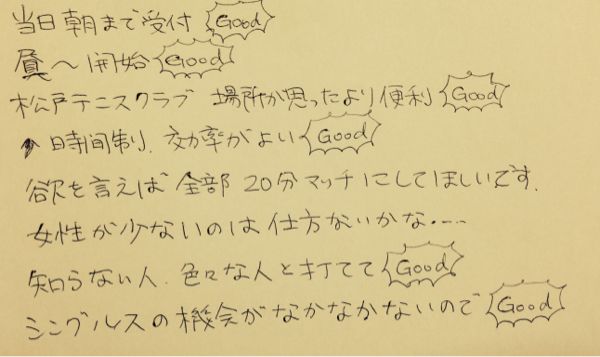 当日朝まで受付 Good
昼~開始 Good
松戸テニスクラブ 場所が思ったより便利 Good
↑ 時間制り、効率がよい Good
欲を言えば 全部 20分マッチにしてほしいです.
女性が少ないのは仕方ないかな.---
知らない人、色々な人と打てて Good
シングルスの機会がなかなかないので Good